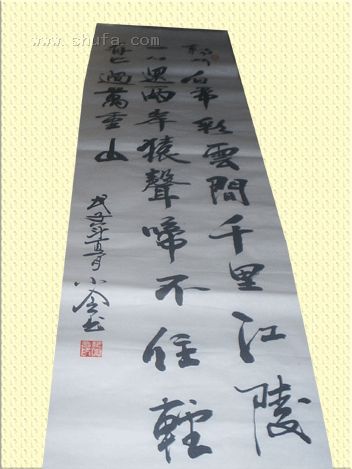 www.shufa.com
朝辭白帝彩雲間千里江陵
一日還兩岸猿聲啼不住輕
舟已過萬重山
戊子年